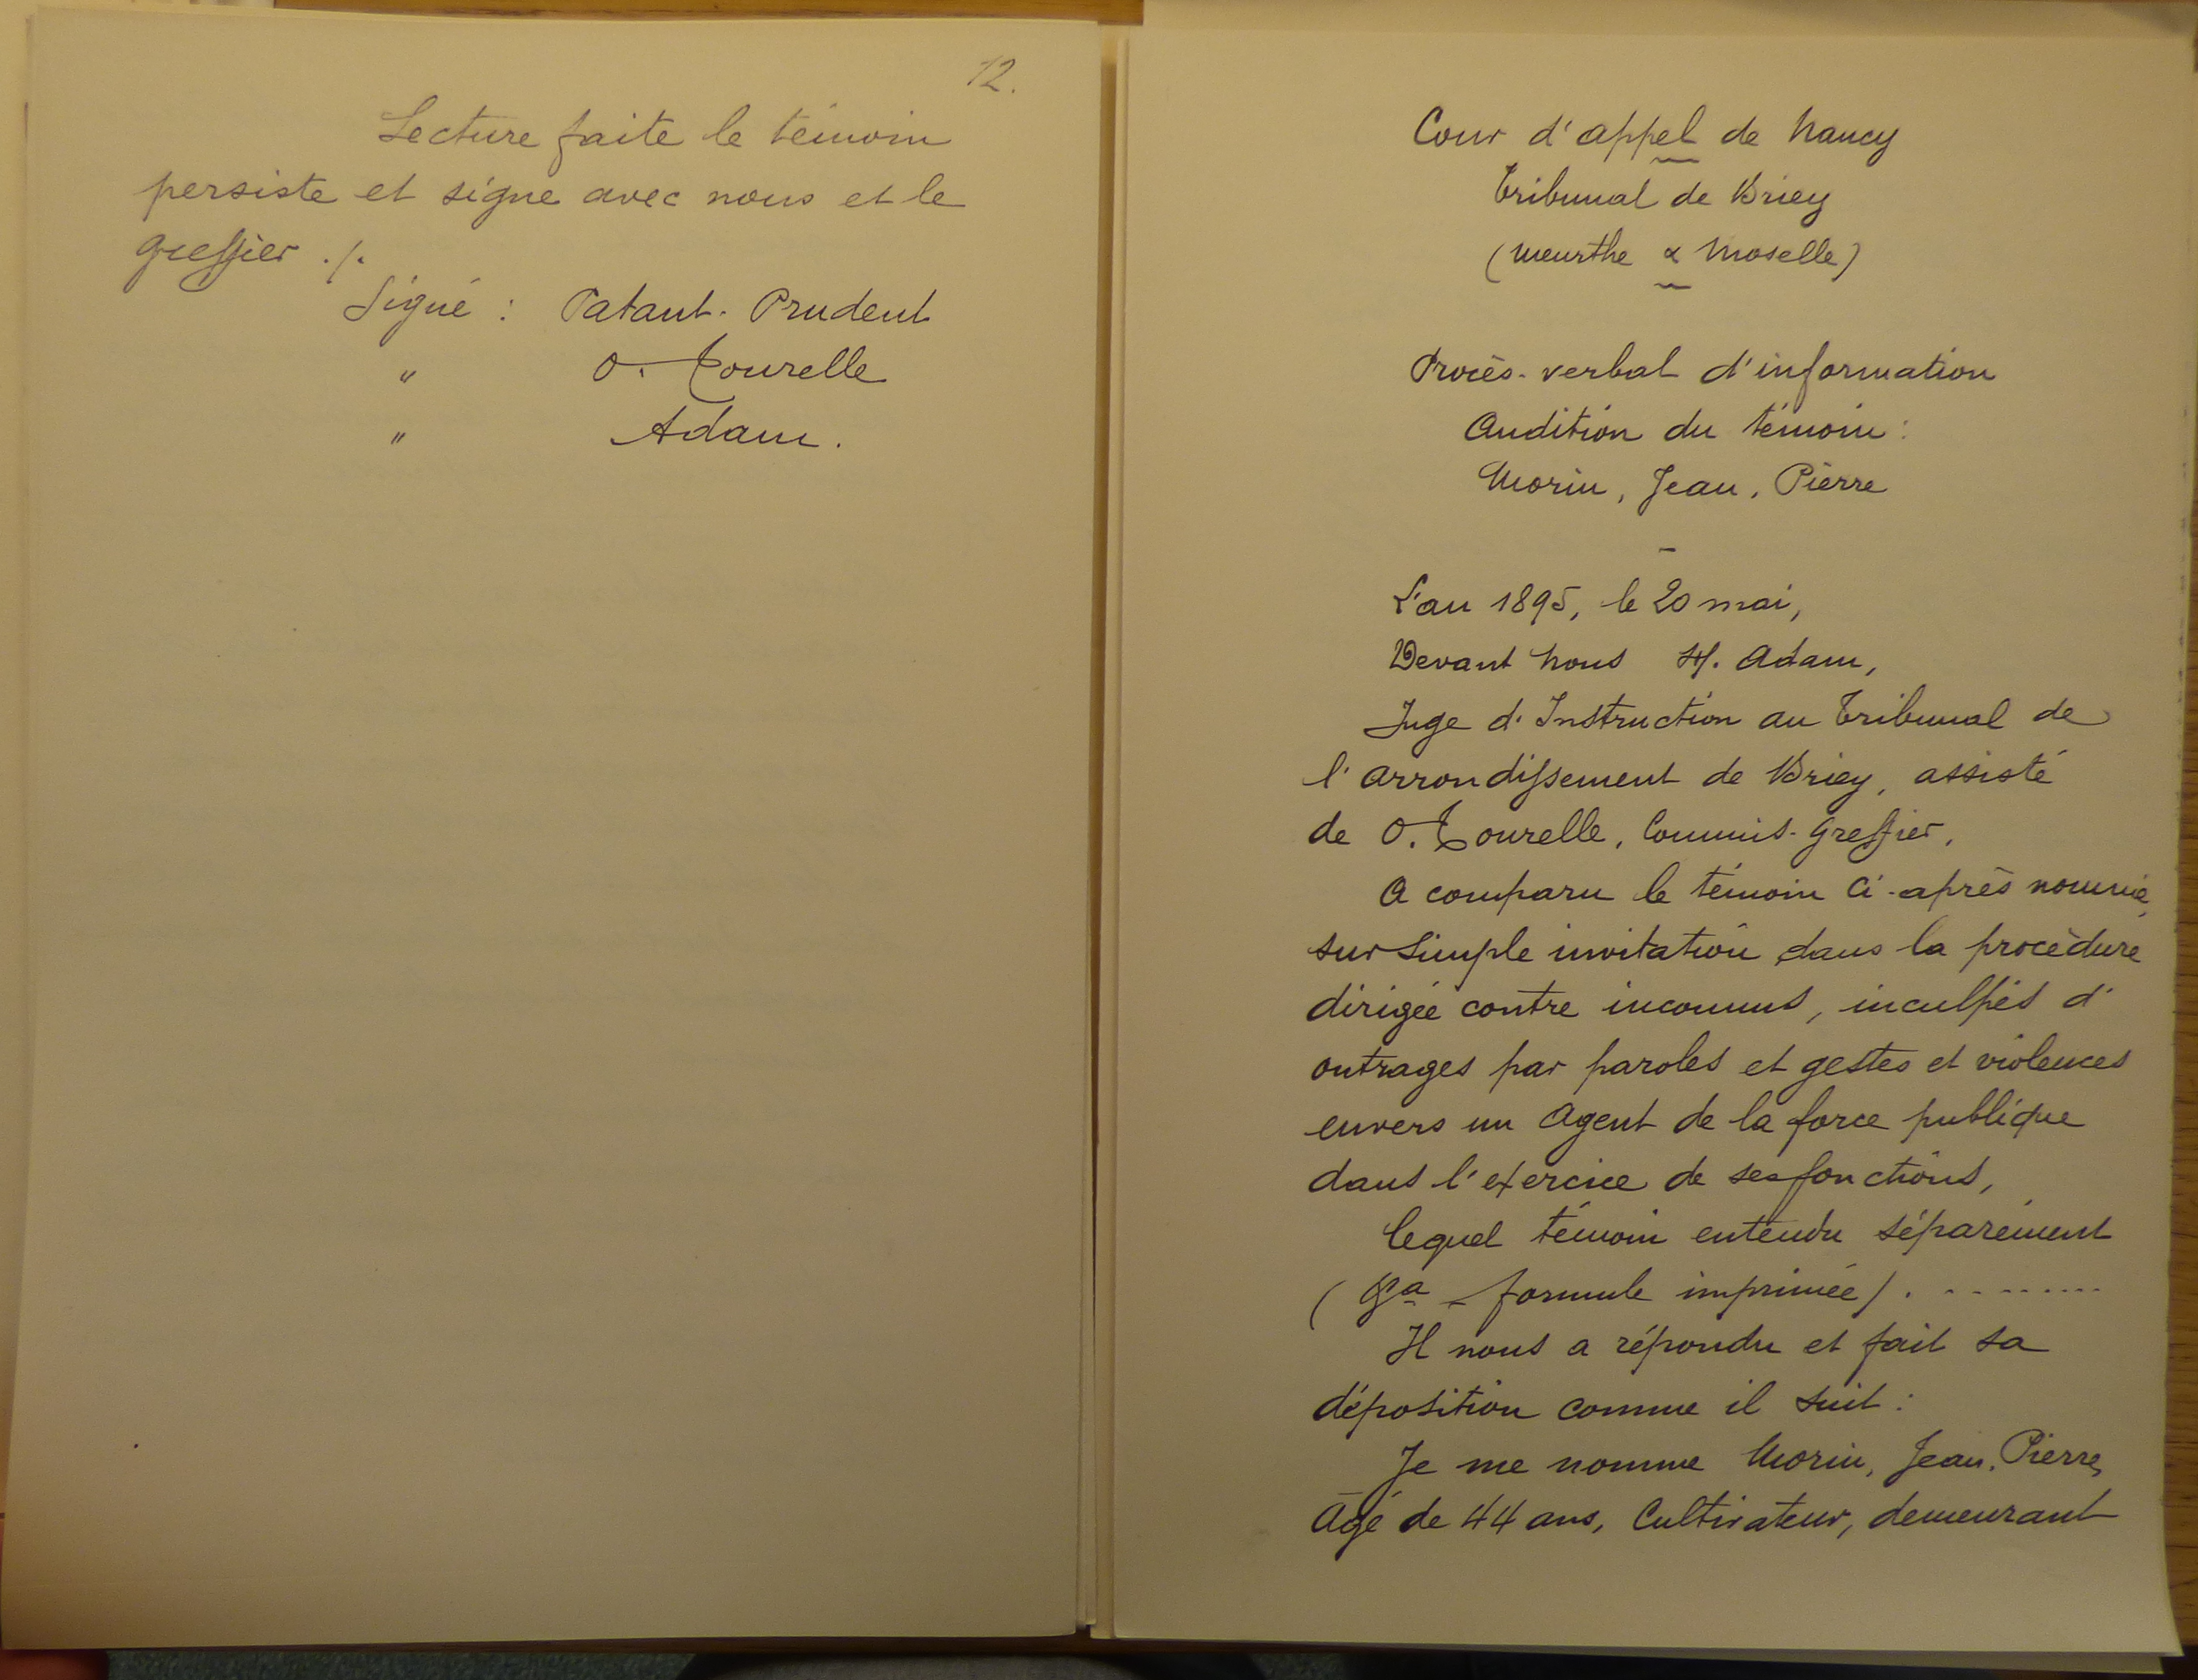 12.
Lecture faite le témoin
persiste et signe avec nous et le
greffier ./.
Signé : Patant-Prudent
" O. Tourelle
" Adam.
Cour d'appel de Nancy
Tribunal de Briey
(Meurthe & Moselle)
Procès-verbal d'information
Audition du témoin :
Morin, Jean, Pierre
L'an 1895, le 20 mai,
Devant Nous H. Adam,
Juge d'Instruction au Tribunal de
l'arrondissement de Briey, assisté
de O. Tourelle, Commis-greffier,
A comparu le témoin ci-après nommé,
sur simple invitation dans la procédure
dirigée contre inconnus, inculpés d'
outrages par paroles et gestes et violences
envers un Agent de la force publique
dans l'exercice de ses fonctions,
lequel témoin entendu séparément
( - formule imprimée) . ---------
Il nous a répondu et fait sa
déposition comme il suit :
Je me nomme Morin, Jean, Pierre,
Agé de 44 ans, Cultivateur, demeurant